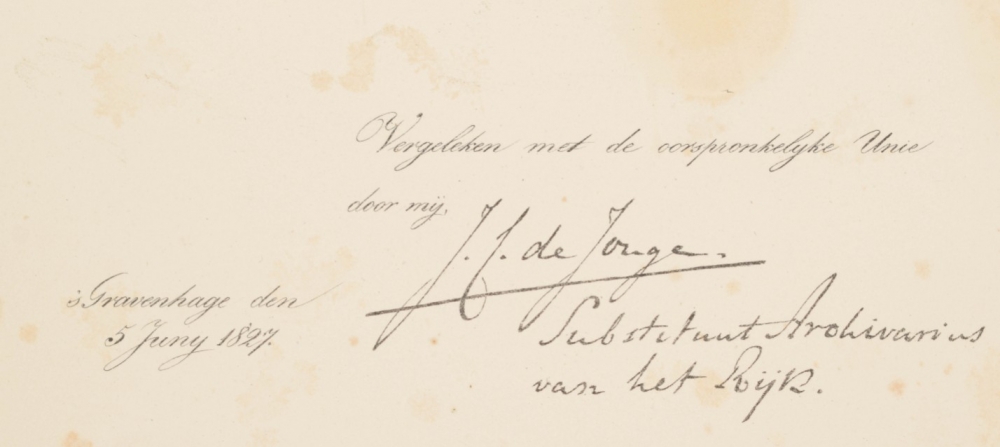 Vergeleken met de oorspronkelyke Unie
door mij,
J. C. de Jonge.
's Gravenhage den
5 Juny 1827.
Substituut Archivarius
van het Rijk.